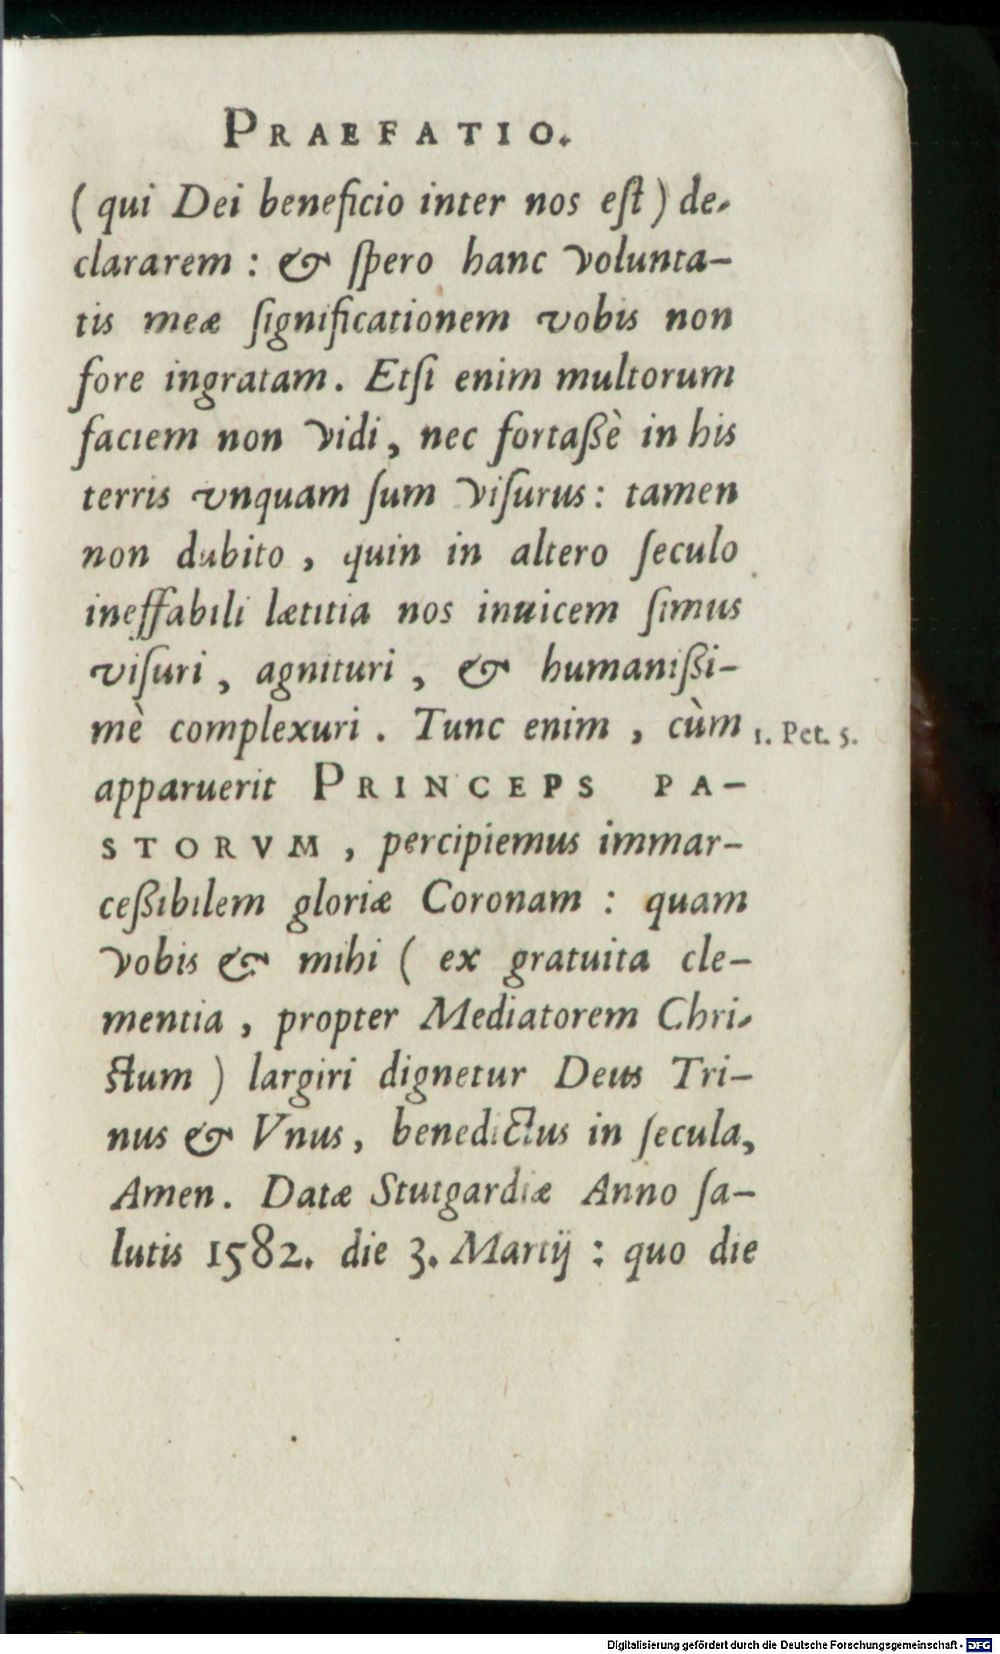 PRAEFATIO.
( qui Dei beneficio inter nos eſt ) de-
clararem : & ſpero hanc volunta-
tis meæ ſignificationem vobis non
fore ingratam. Etſi enim multorum
faciem non vidi, nec fortaßè in his
terris vnquam ſum viſurus: tamen
non dubito, quin in altero ſeculo
ineffabili lætitia nos inuicem ſimus
viſuri, agnituri, & humanißi-
mè complexuri. Tunc enim, cùm
1. Pet. 5.
apparuerit PRINCEPS PA-
STORVM, percipiemus immar-
ceßibilem gloriæ Coronam : quam
vobis & mihi ( ex gratuita cle-
mentia, propter Mediatorem Chri-
ſtum ) largiri dignetur Deus Tri-
nus & Vnus, benedictus in ſecula,
Amen. Datæ Stutgardiæ Anno ſa-
lutis 1582. die 3. Martij : quo die
Digitalisierung gefördert durch die Deutsche Forschungsgemeinschaft - DFG